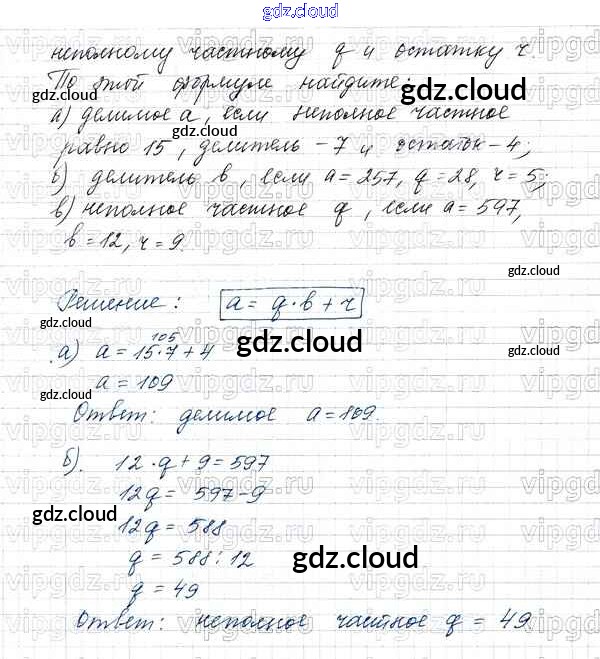 gdz.cloud
неполному частному q и остатку r.
По этой формуле найдите:
а) делимое a, если неполное частное
равно 15, делитель – 7 и остаток – 4;
б) делитель b, если a = 257, q = 28, r = 5;
в) неполное частное q, если a = 597,
b = 12, r = 9.
Решение: a = q · b + r
105
а) a = 15 · 7 + 4
a = 109
Ответ: делимое a = 109.
б). 12 · q + 9 = 597
12q = 597 – 9
12q = 588
q = 588 : 12
q = 49
Ответ: неполное частное q = 49
gdz.cloud
gdz.cloud
gdz.cloud
gdz.cloud
gdz.cloud
gdz.cloud
gdz.cloud
gdz.cloud
gdz.cloud
vipgdz.ru